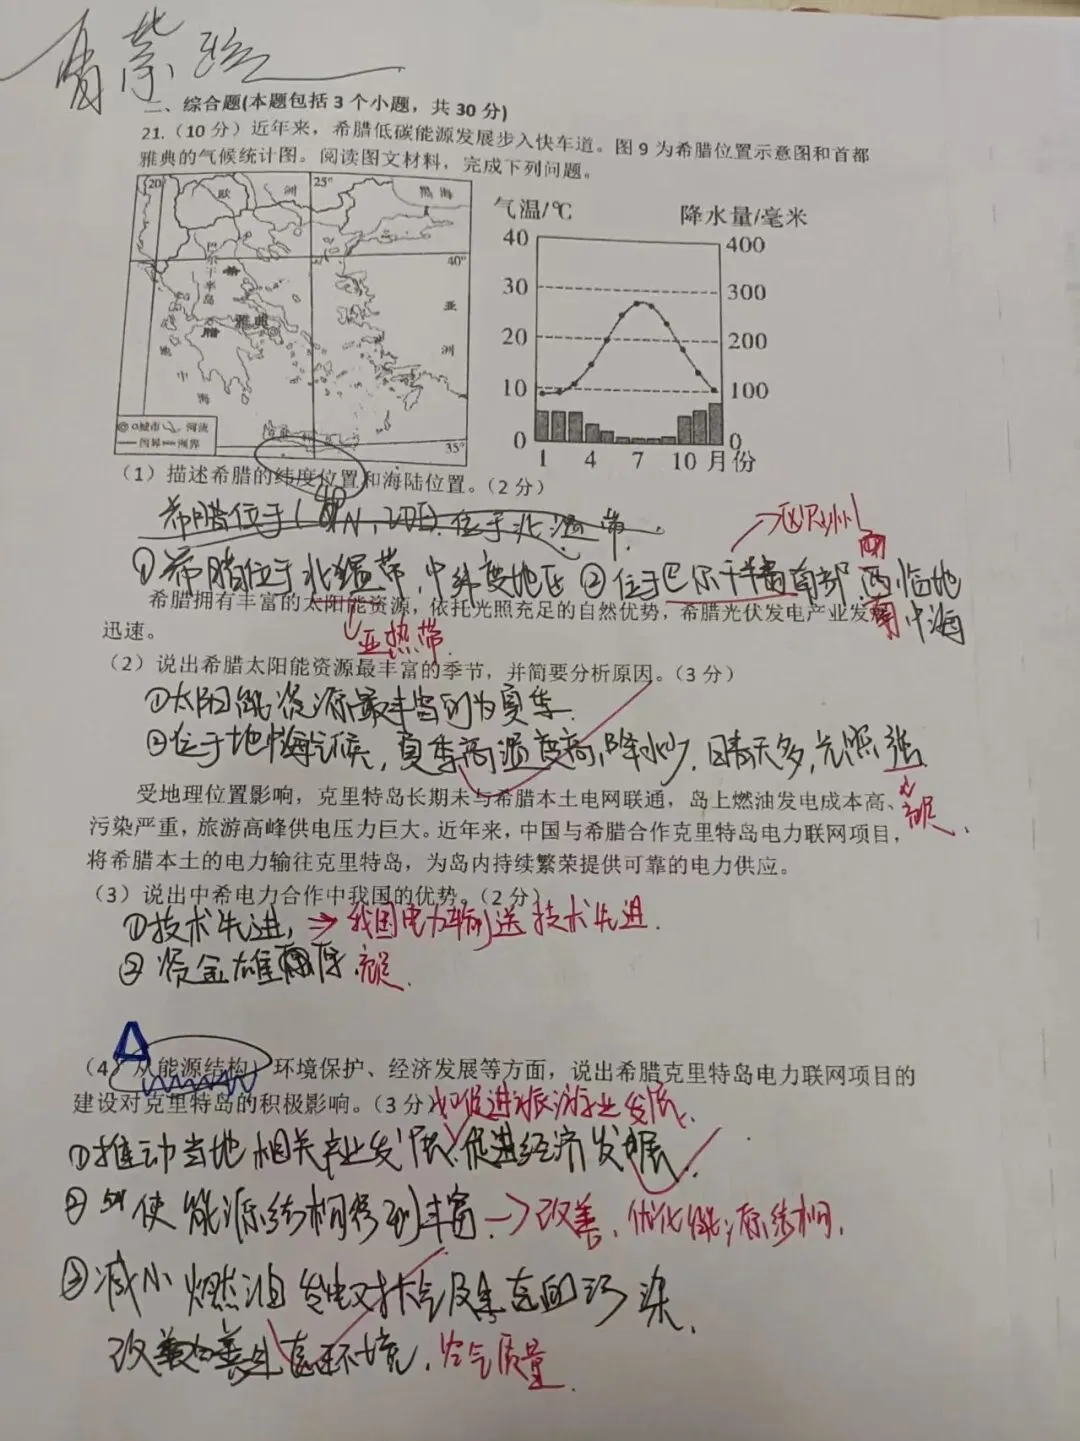 二、综合题(本题包括3个小题，共30分)
21.（10分）近年来，希腊低碳能源发展步入快车道。图9为希腊位置示意图和首都
雅典的气候统计图。阅读图文材料，完成下列问题。
20° 欧 洲 25° 黑海
40°
巴尔干半岛
希
腊
雅典
亚
洲
地
中
海
35°
◎城市 河流
国界 洲界
气温/℃ 降水量/毫米
40 400
30 300
20 200
10 100
0 0
1 4 7 10 月份
（1）描述希腊的纬度位置和海陆位置。（2分）
希腊位于 位于北温带.
→欧洲
①希腊位于北温带，中纬度地区 ②位于巴尔干半岛南部，西临地
南
中海
希腊拥有丰富的太阳能资源，依托光照充足的自然优势，希腊光伏发电产业发
迅速。
亚热带.
（2）说出希腊太阳能资源最丰富的季节，并简要分析原因。（3分）
①太阳能资源最丰富的为夏季.
②位于地中海气候，夏季高温度高，降水少，日晴天多，光照强
充足.
受地理位置影响，克里特岛长期未与希腊本土电网联通，岛上燃油发电成本高、
污染严重，旅游高峰供电压力巨大。近年来，中国与希腊合作克里特岛电力联网项目，
将希腊本土的电力输往克里特岛，为岛内持续繁荣提供可靠的电力供应。
（3）说出中希电力合作中我国的优势。（2分）
①技术先进，⇒我国电力输送技术先进.
②资金雄厚
（4）从能源结构、环境保护、经济发展等方面，说出希腊克里特岛电力联网项目的
建设对克里特岛的积极影响。（3分）如促进旅游业发展.
①推动当地相关产业发展，促进经济发展.
②使能源结构得到丰富→改善，优化能源结构.
③减少燃油发电对大气及生态的污染.
改善生态环境，空气质量.